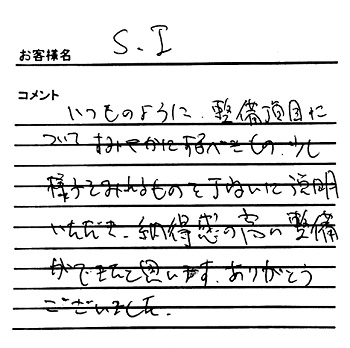 お客様名 S.I
コメント
いつものように、整備項目に
ついてすみやかにするべきもの、少し
様子をみれるものを丁ねいに説明
いただき、納得感の高い整備
ができたと思います。ありがとう
ございました。